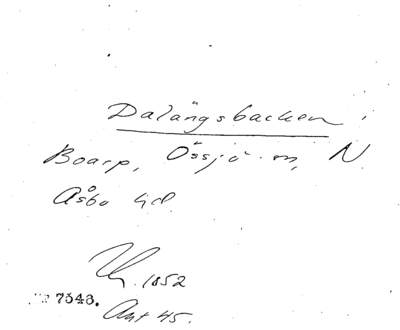 Dalängsbacken i
Boarp, Össjö sn, N.
Åsbo hd.
1852
7343.
Ant 45.